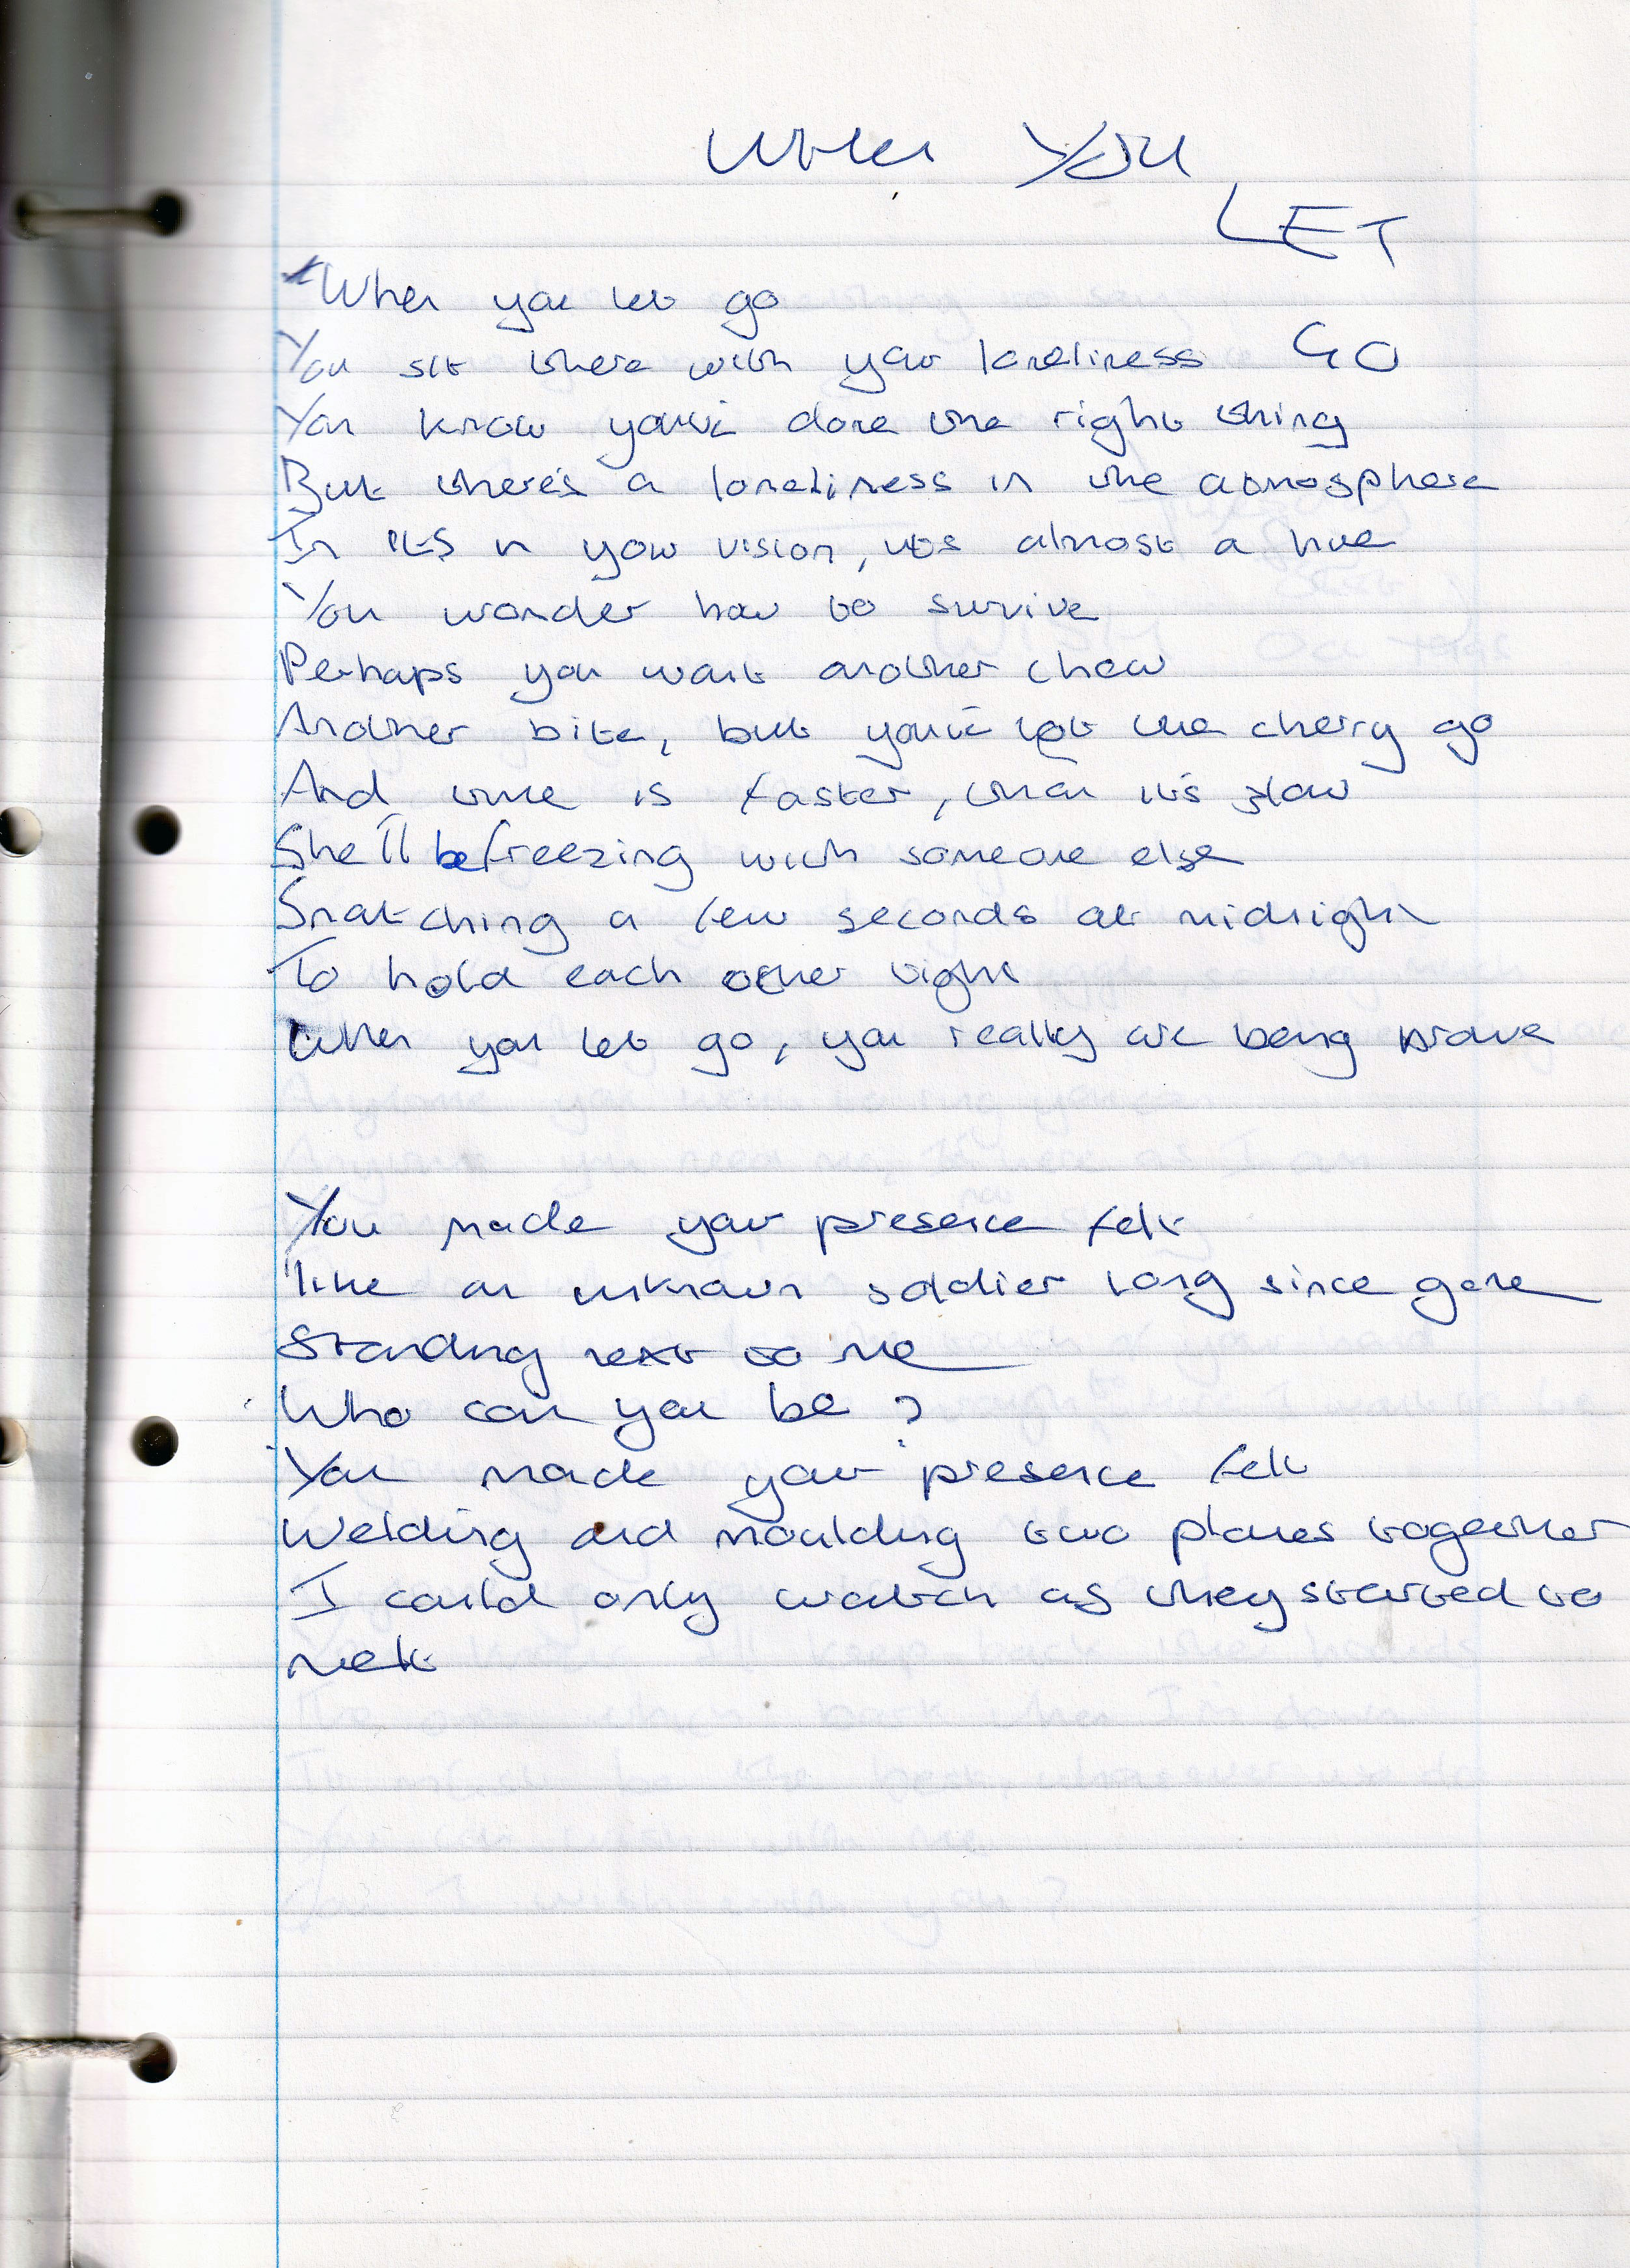 When You
LET
When you let go
GO
You sit there with your loneliness
You know you've done the right thing
But there's a loneliness in the atmosphere
In its in your vision, its almost a hue
You wonder how to survive
Perhaps you want another chew
Another bite, but you've let the cherry go
And time is faster, than it's slow
She'll be freezing with someone else
Snatching a few seconds at midnight
To hold each other tight
When you let go, you really are being brave
You made your presence felt
like an unknown soldier long since gone
Standing next to me
Who can you be?
You made your presence felt
Welding and moulding two planes together
I could only watch as they started to
melt